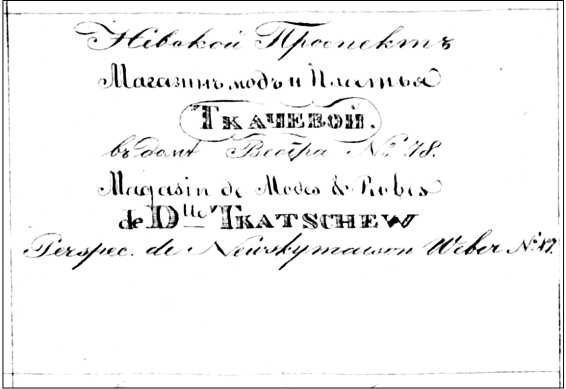 Невской Проспектъ
Магазинъ модъ и Платья
ТКАЧЕВОЙ.
въ домѣ Вебера №
Magasin de Modes & Robes
de Dlle TKATSCHEW
Perspec. de Newsky maison Weber №